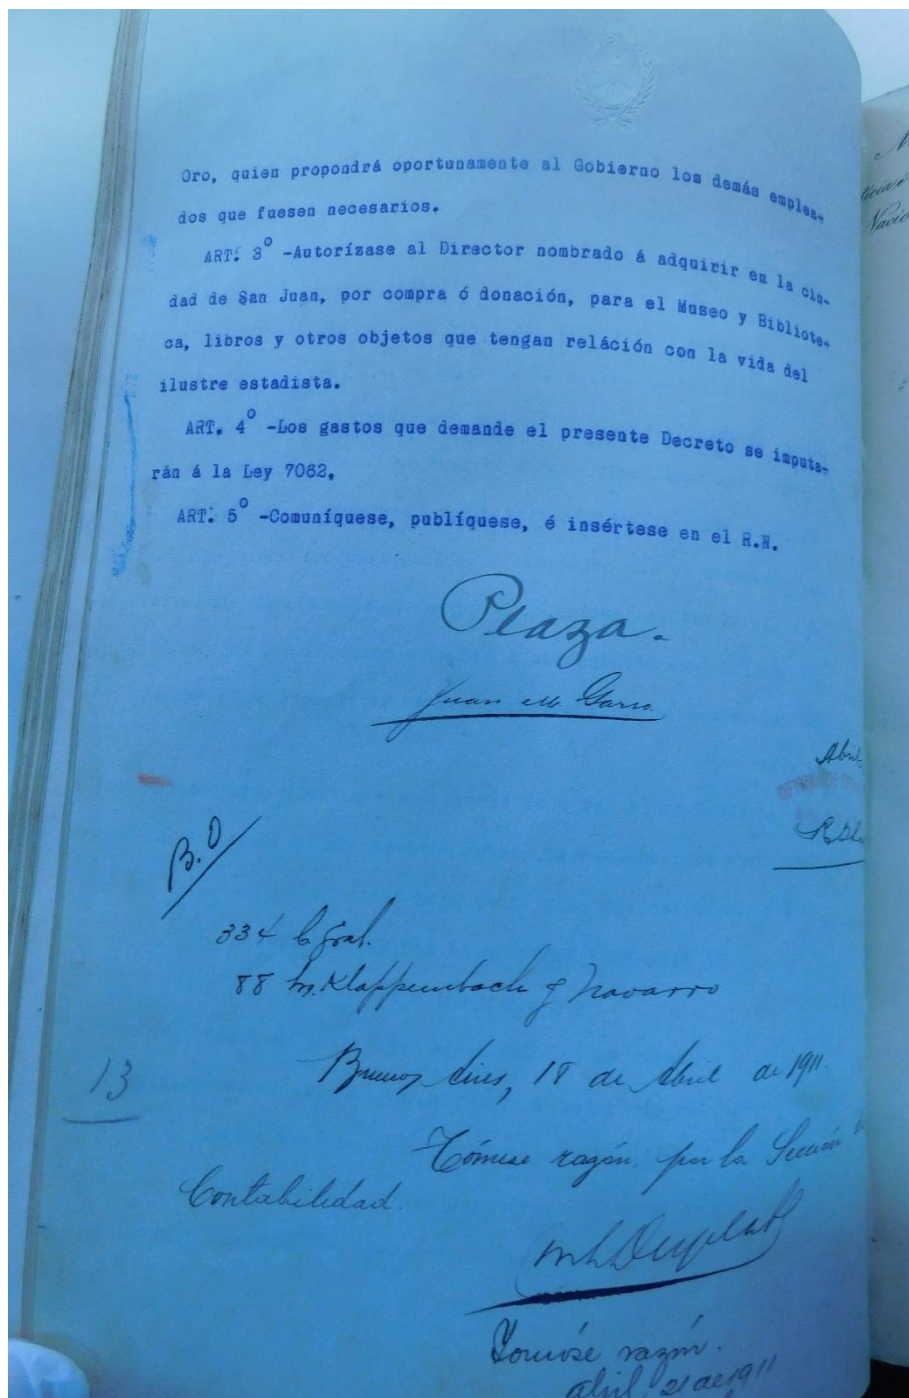 Oro, quien propondrá oportunamente al Gobierno los demás emplea-
dos que fuesen necesarios.
ART. 3º -Autorízase al Director nombrado á adquirir en la ciu-
dad de San Juan, por compra ó donación, para el Museo y Bibliote-
ca, libros y otros objetos que tengan reláción con la vida del
ilustre estadista.
ART. 4º -Los gastos que demande el presente Decreto se imputa-
rán á la Ley 7062.
ART. 5º -Comuníquese, publíquese, é insértese en el R.N.
Plaza.
Juan M Garro.
Abril
B.O
334 C Gral.
88 Klappenbach y Navarro
Buenos Aires, 18 de Abril de 1911.
13
Tómese razón por la Sección
Contabilidad.
Tomóse razón.
abril 21 de 1911